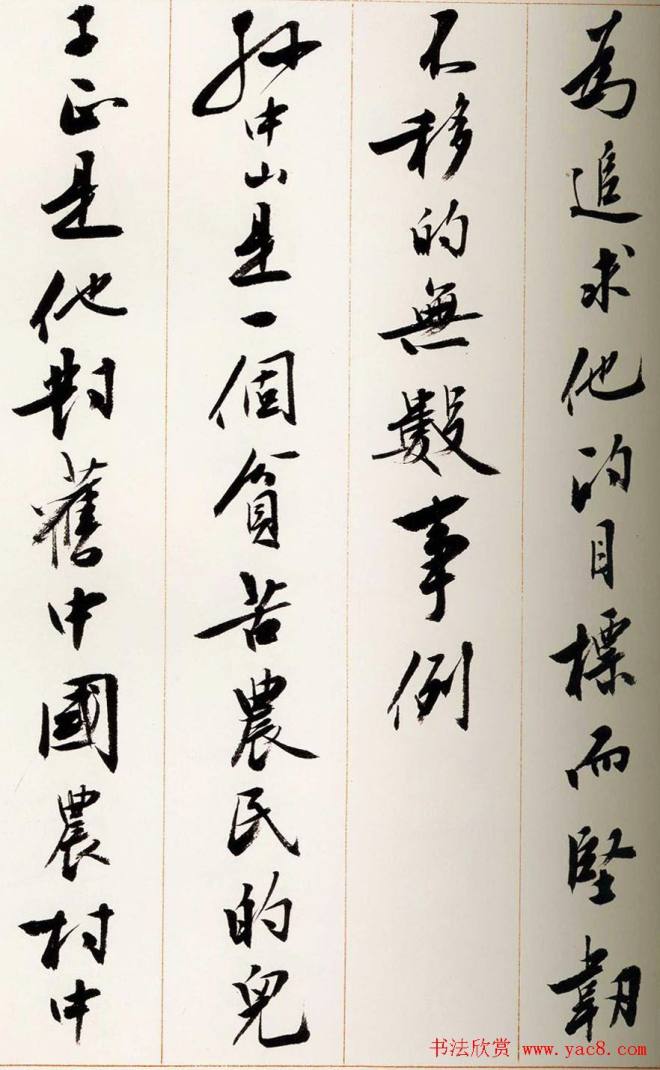 為追求他的目標而堅韌
不移的無數事例
孫中山是一個貧苦農民的兒
子正是他對舊中國農村中
书法欣赏 www.yac8.com